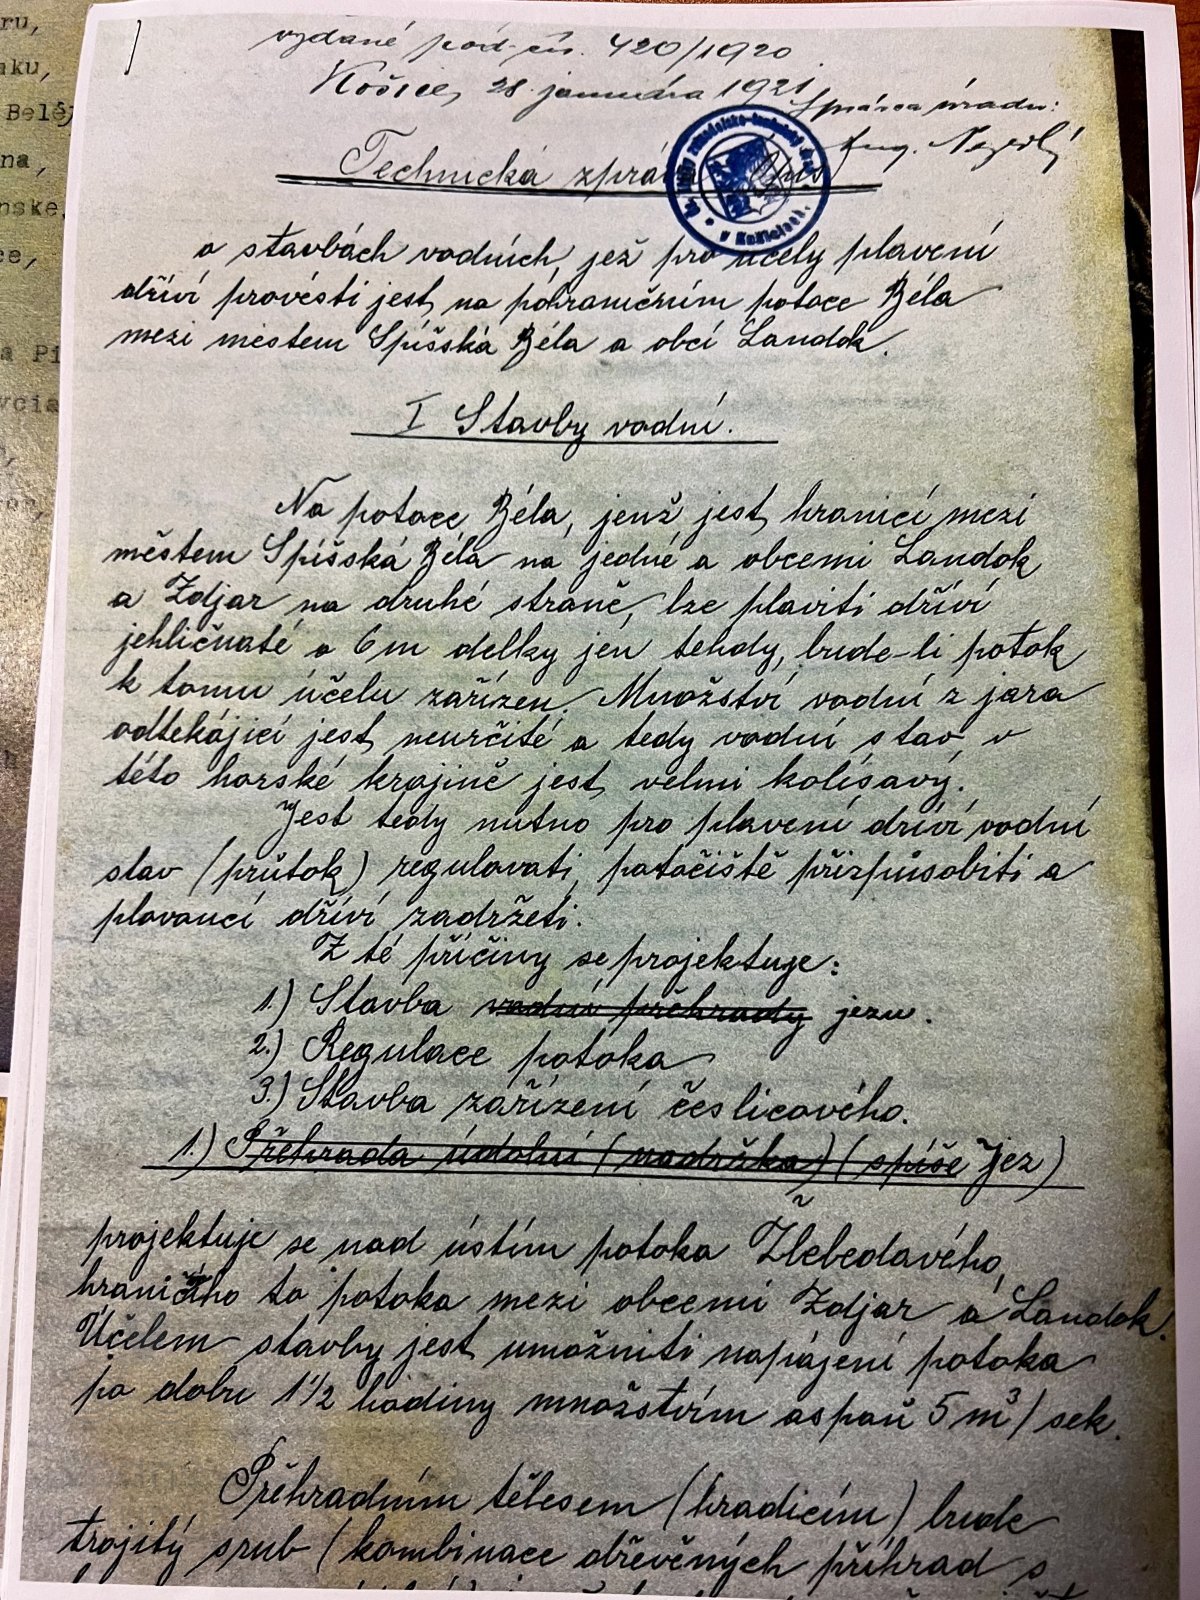 vydané pod čís. 420/1920
Košice, 28. januára 1921
Správca úradu:
Ing.
Technická zpráva
v Košiciach.
o stavbách vodních, jež pro účely plavení
dříví provésti jest, na pohraničním potoce Béla
mezi městem Spišská Béla a obcí Landok.
I Stavby vodní.
Na potoce Béla, jenž jest, hranicí mezi
městem Spišská Béla na jedné a obcemi Landok
a Zdjar na druhé straně, lze plaviti dříví
jehličnaté o 6 m delky jen tehdy, bude-li potok
k tomu účelu zařízen. Množství vodní z jara
odtékající jest, neurčité a tedy vodní stav, v
této horské krajině jest, velmi kolísavý.
Jest tedy nutno pro plavení dříví vodní
stav (průtok) regulovati, potočiště přizpůsobiti a
plovoucí dříví zadržeti.
Z té příčiny se projektuje:
1.) Stavba vodní přehrady jezu.
2.) Regulace potoka
3.) Stavba zařízení česlicového.
1.) Přehrada údolní (nadržka) (spíše Jez)
projektuje se nad ústím potoka Žlebedavého,
hraničního to potoka mezi obcemi Zdjar a Landok.
Účelem stavby jest umožniti napájení potoka
po dobu 1 1/2 hodiny množstvím aspoň 5 m³/sek.
Přehradním tělesem (hradicím) bude
trojitý srub (kombinace dřevěných přihrad s